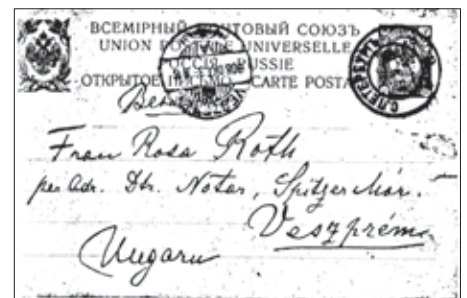 ВСЕМІРНЫЙ ПОЧТОВЫЙ СОЮЗЪ
UNION POSTALE UNIVERSELLE
РОССІЯ RUSSIE
ОТКРЫТОЕ ПИСЬМО CARTE POSTALE
С.ПЕТЕРБУРГЪ
Frau Rosa Roth
per Adr. Hr. Notar, Spitzer Mór.
Veszprém
Ungarn